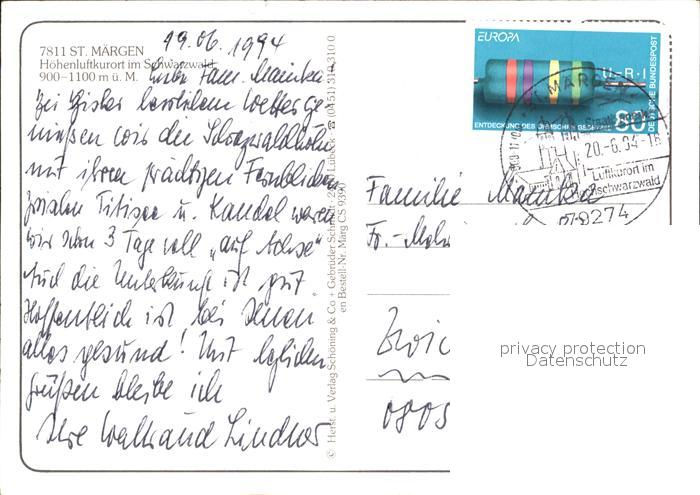 19.06.1994
7811 ST. MÄRGEN
Höhenluftkurort im Schwarzwald
900–1100 m ü. M.
Liebe Fam. Mainka
Bei bisher herrlichem Wetter ge-
nießen wir die Schwarzwaldhöhen
mit ihren prächtigen Fernblicken
zwischen Titisee u. Kandel waren
wir schon 3 Tage voll „auf Achse"
Auch die Unterkunft ist gut.
Hoffentlich ist bei Ihnen
alles gesund! Mit herzlichen
Grüßen bleibe ich
Ihre Waltraud Lindner
© Herst. u. Verlag Schöning & Co + Gebrüder Schmidt, Lübeck ☎ (0451) 31 03 10 0
en Bestell-Nr. Märg CS 9390
EUROPA
U=R·I
ENTDECKUNG DES OHMSCHEN GESETZES
80
DEUTSCHE BUNDESPOST
ST. MÄRGEN
20-6.94-16
Luftkurort im
Hochschwarzwald
79274
Familie Mainka
Fr.-Meh
Zwic
080
privacy protection
Datenschutz